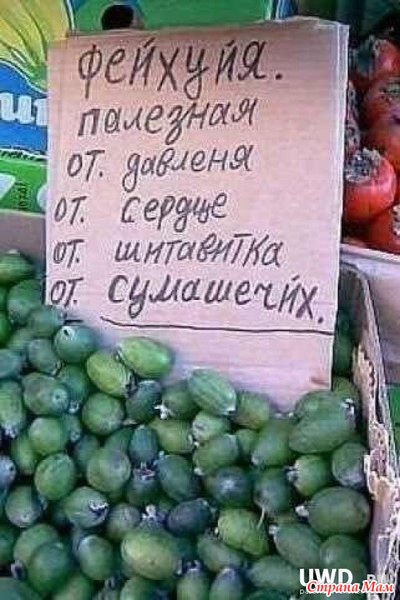 фейхуйя.
палезная
от. давленя
от. сердце
от. шитавитка
от. сумашечйх.
UWD.
Страна Мам